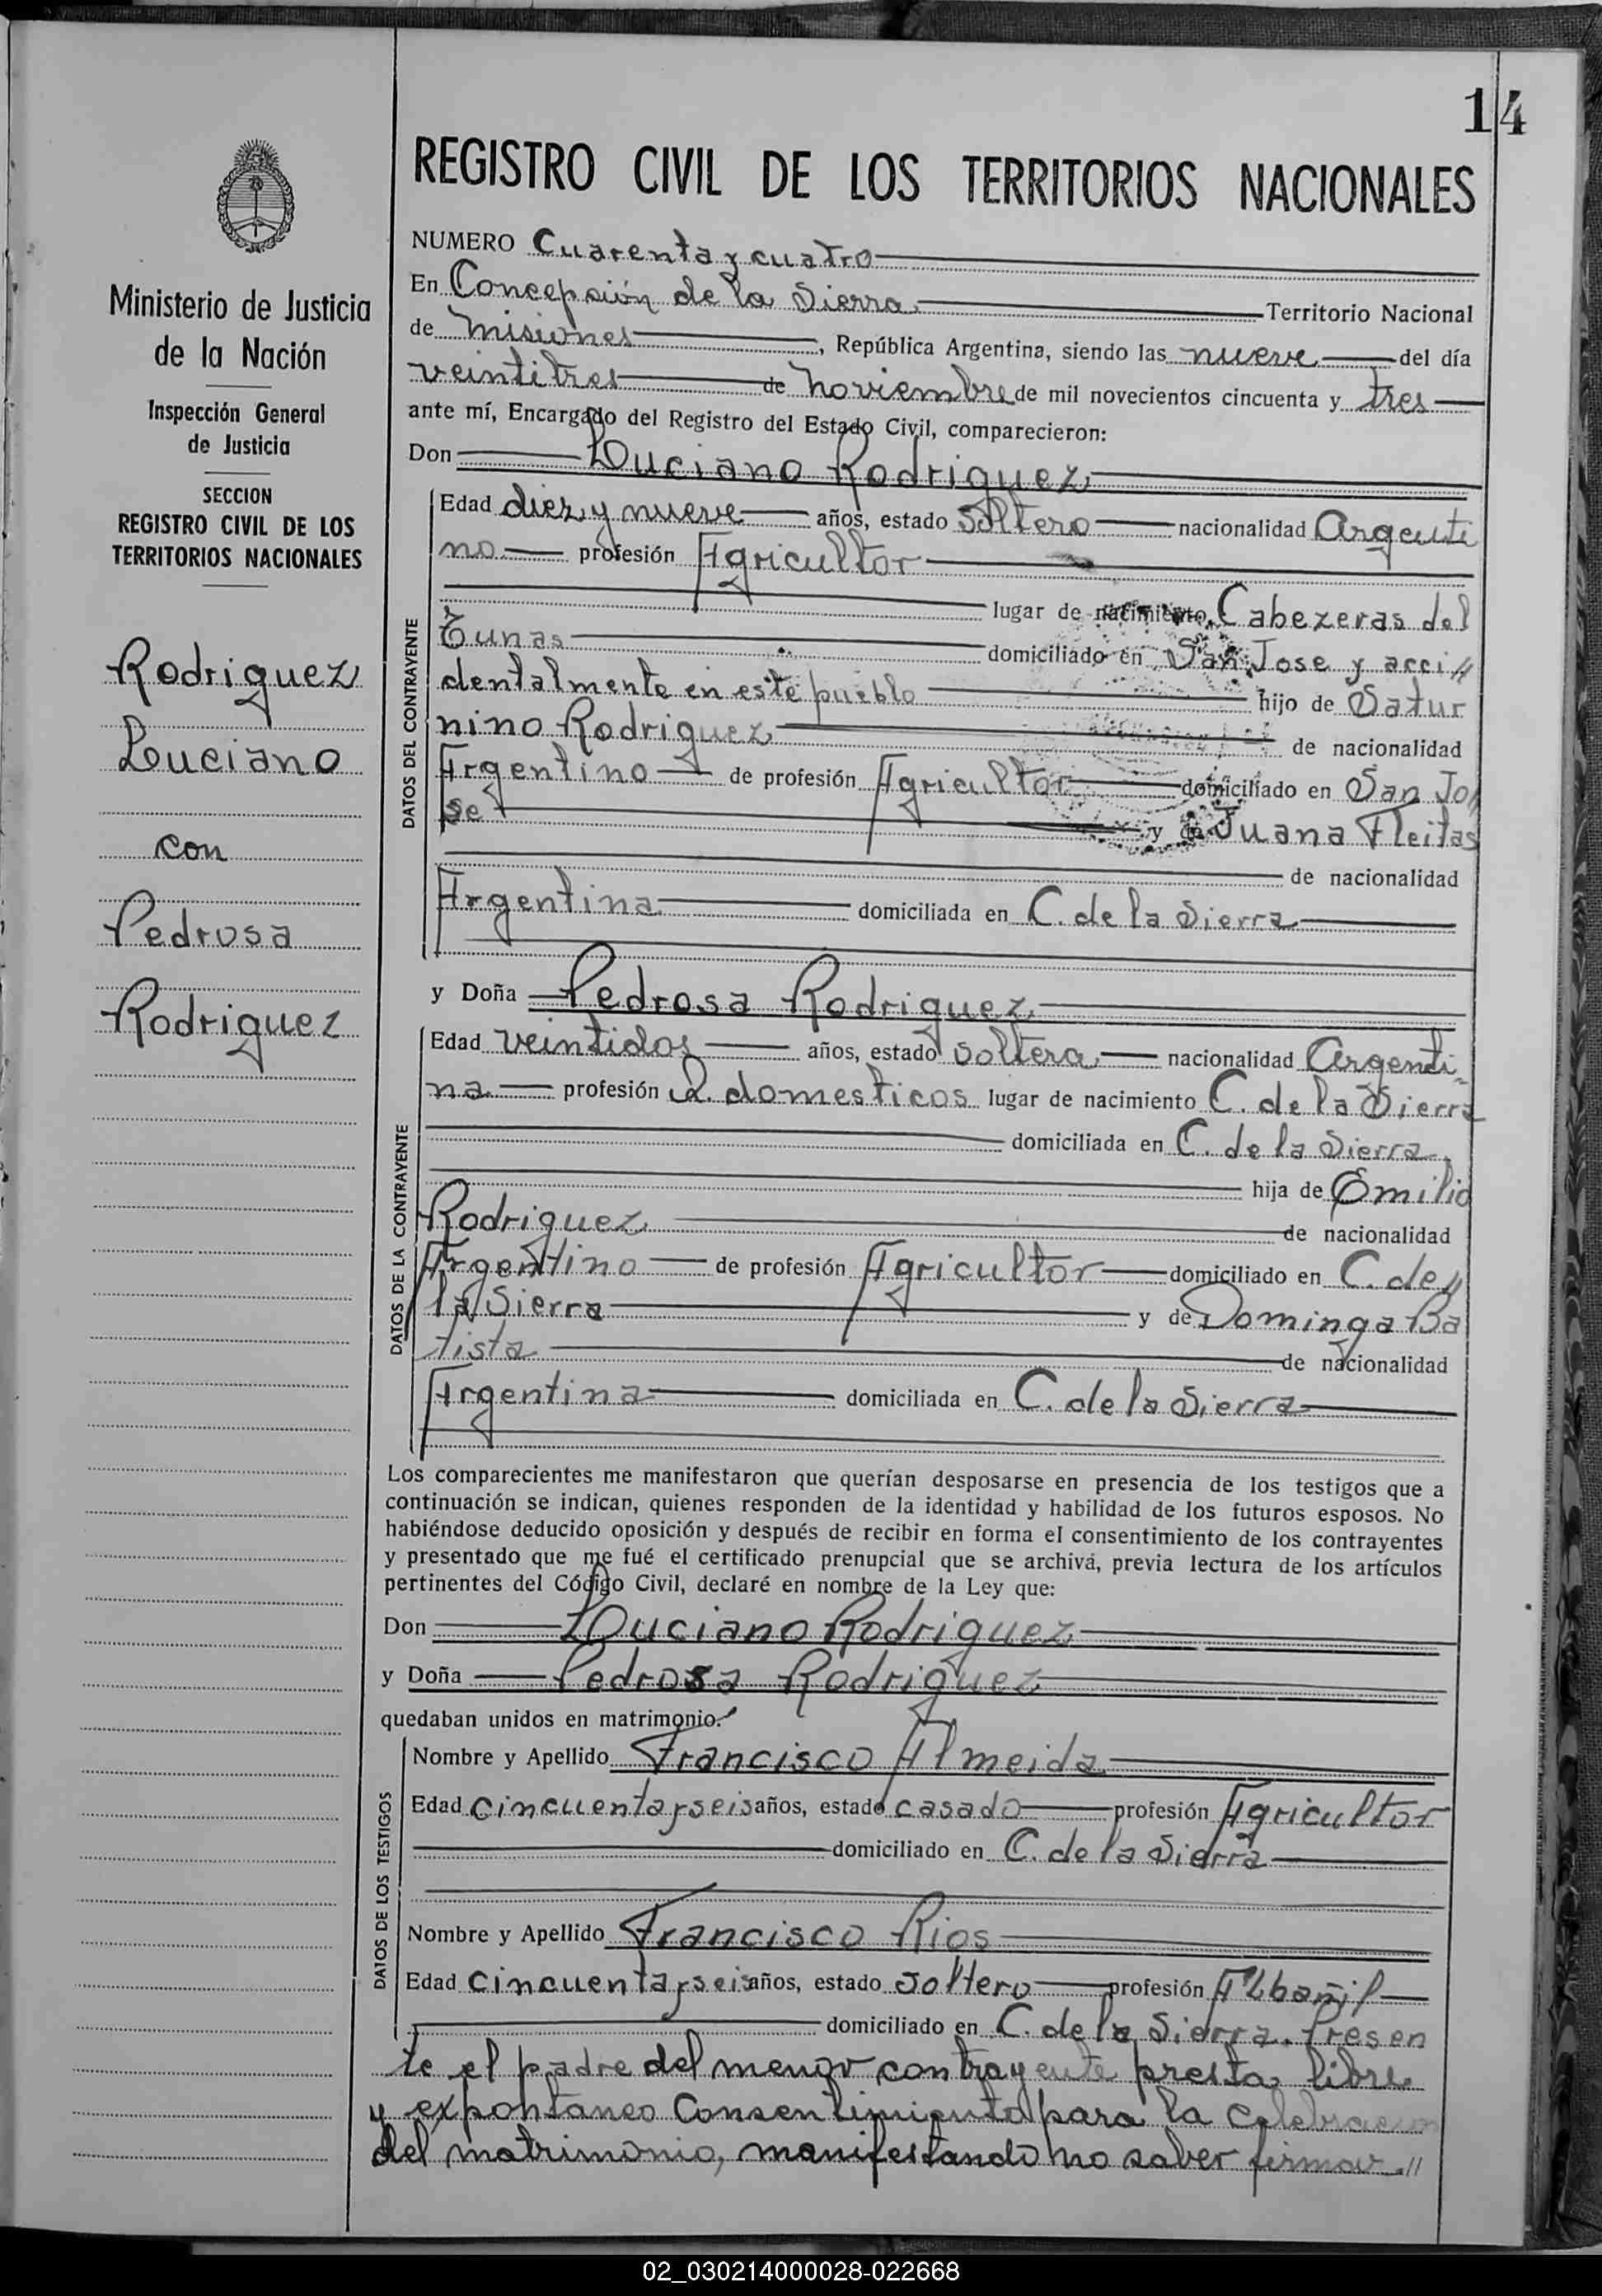 14
REGISTRO CIVIL DE LOS TERRITORIOS NACIONALES
Ministerio de Justicia
de la Nación
Inspección General
de Justicia
SECCION
REGISTRO CIVIL DE LOS
TERRITORIOS NACIONALES
Rodriguez
Luciano
con
Pedrosa
Rodriguez
NUMERO Cuarenta y cuatro
En Concepción de la Sierra Territorio Nacional
de Misiones, República Argentina, siendo las nueve del día
veintitres de Noviembre de mil novecientos cincuenta y tres
ante mí, Encargado del Registro del Estado Civil, comparecieron:
Don Luciano Rodriguez
DATOS DEL CONTRAYENTE
Edad diez y nueve años, estado Soltero nacionalidad Argenti
no profesión Agricultor
lugar de nacimiento Cabezeras del
Tunas domiciliado en San Jose y acci//
dentalmente en este pueblo hijo de Satur
nino Rodriguez de nacionalidad
Argentino de profesión Agricultor domiciliado en San Jo//
se y de Juana Fleitas
de nacionalidad
Argentina domiciliada en C. de la Sierra
y Doña Pedrosa Rodriguez
DATOS DE LA CONTRAYENTE
Edad veintidos años, estado soltera nacionalidad Argenti-
na profesión Q. domesticos lugar de nacimiento C. de la Sierra
domiciliada en C. de la Sierra
hija de Emilio
Rodriguez de nacionalidad
Argentino de profesión Agricultor domiciliado en C. de//
la Sierra y de Dominga Ba
tista de nacionalidad
Argentina domiciliada en C. de la Sierra
Los comparecientes me manifestaron que querían desposarse en presencia de los testigos que a
continuación se indican, quienes responden de la identidad y habilidad de los futuros esposos. No
habiéndose deducido oposición y después de recibir en forma el consentimiento de los contrayentes
y presentado que me fué el certificado prenupcial que se archivá, previa lectura de los artículos
pertinentes del Código Civil, declaré en nombre de la Ley que:
Don Luciano Rodriguez
y Doña Pedrosa Rodriguez
quedaban unidos en matrimonio.
DATOS DE LOS TESTIGOS
Nombre y Apellido Francisco Almeida
Edad cincuenta y seis años, estado casado profesión Agricultor
domiciliado en C. de la Sierra
Nombre y Apellido Francisco Rios
Edad cincuenta y seis años, estado soltero profesión Albañil
domiciliado en C. de la Sierra. Presen
te el padre del menor contrayente presta libre
y expontaneo Consentimiento para la celebracion
del matrimonio, manifestando no saber firmar.//
02_030214000028-022668